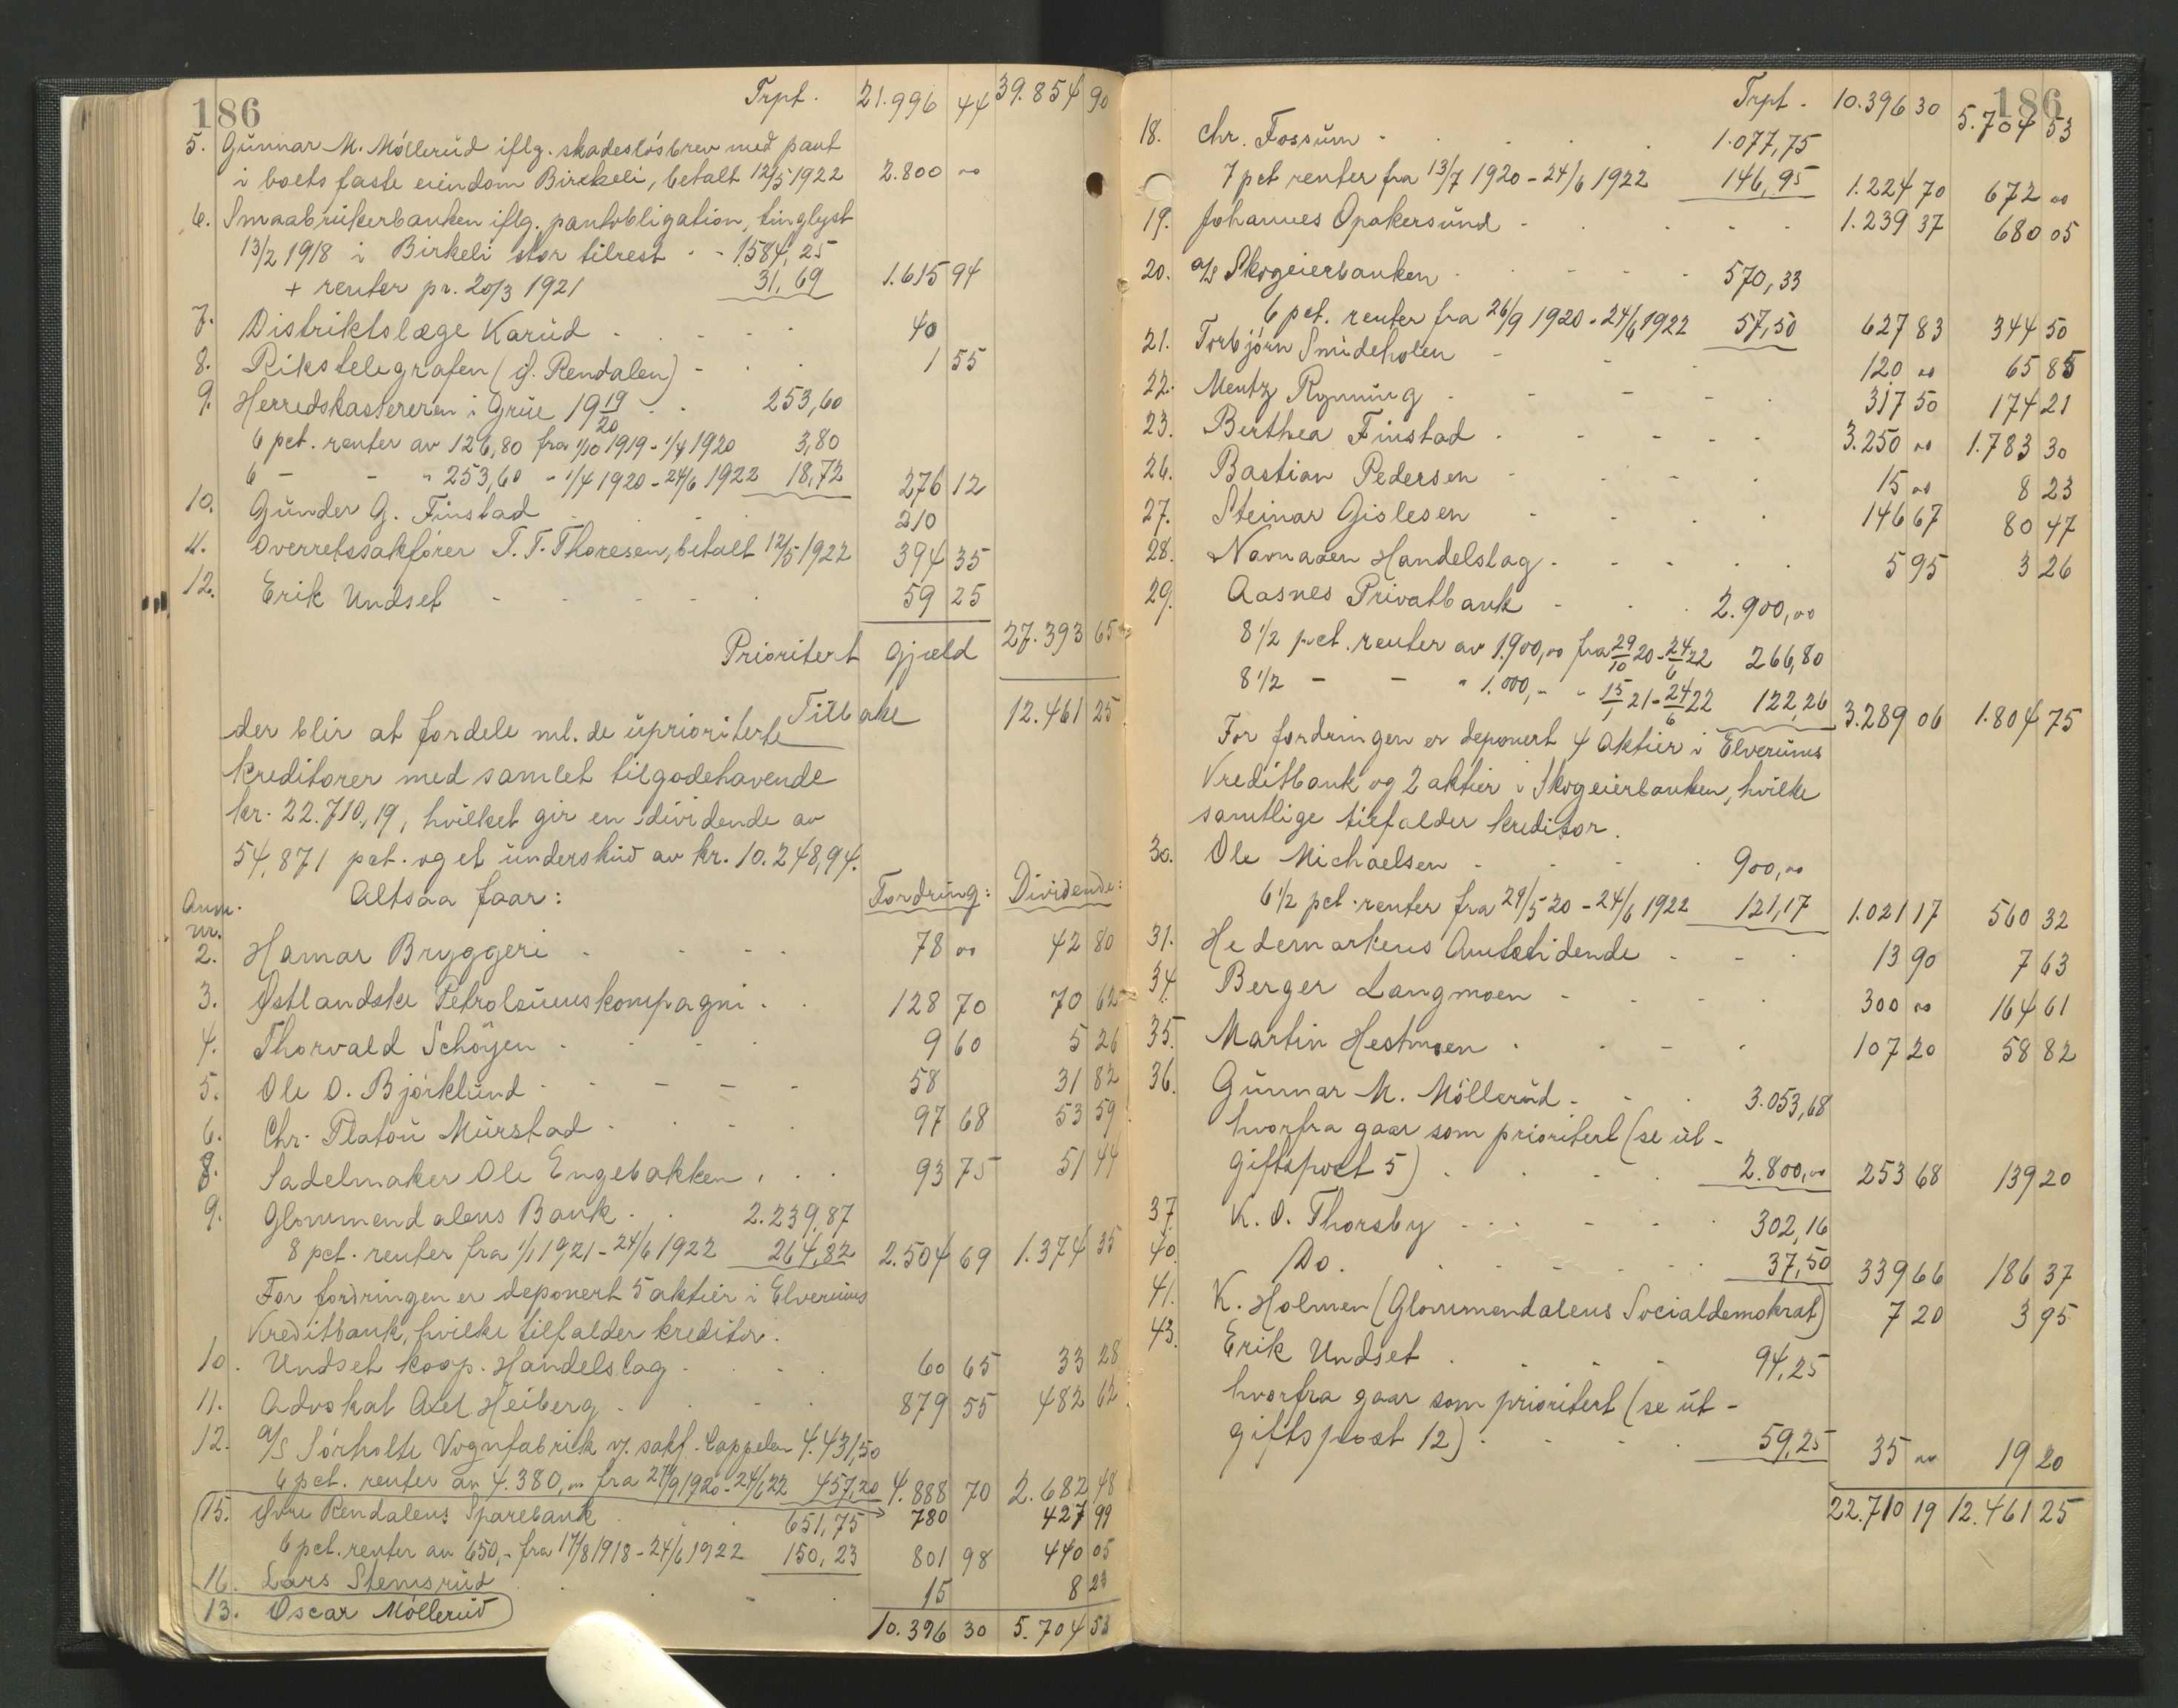 186
Trpt. 21.996 44 39.854 90
5. Gunnar M. Möllerud iflg. skadeslösbrev med pant
i boets faste eiendom Birkeli, betalt 12/5 1922 2.800 00
6. Smaabrukerbanken iflg. pantobligation, tinglyst
13/2 1918 i Birkeli stor tilrest - - 1.584,25
+ renter pr. 20/3 1921 31,69 1.615 94
7. Distriktslæge Karud - - - 40
8. Rikstelegrafen (Y. Rendalen) - - 1 55
9. Herredskassereren i Grue 19 19/20 - - 253,60
6 pct. renter av 126,80 fra 1/10 1919 - 1/4 1920 3,80
6 - - " 253,60 - 1/4 1920 - 24/6 1922 18,72 276 12
10. Gunder G. Finstad - - - 210
11. Overretssakförer T. T. Thoresen, betalt 12/5 1922 394 35
12. Erik Undset - - - - - 59 25
Prioritert gjæld 27.393 65
Tilbake 12.461 25
der blir at fordele ml. de uprioriterte
kreditorer med samlet tilgodehavende
kr. 22.710,19, hvilket gir en dividende av
54,871 pct. og et underskud av kr. 10.248,94.
Altsaa faar: Fordring: Dividende:
Anm.
nr.
2. Hamar Bryggeri - - - - 78 00 42 80
3. Østlandske Petroleumskompagni - - 128 70 70 62
4. Thorvald Schöyen - - - - 9 60 5 26
5. Ole O. Björklund - - - - - 58 31 82
6. Chr. Platou Murstad - - - - 97 68 53 59
8. Sadelmaker Ole Engebakken - - - 93 75 51 44
9. Glommendalens Bank - - 2.239,87
8 pct. renter fra 1/1 1921 - 24/6 1922 264,82 2.504 69 1.374 35
For fordringen er deponert 5 aktier i Elverums
Kreditbank, hvilke tilfalder kreditor.
10. Undset koop. Handelslag - - - - 60 65 33 28
11. Advokat Axel Heiberg - - - - 879 55 482 62
12. A/S Sörholte Vognfabrik v/. sakf. Cappelen 4.431,50
6 pct. renter av 4.380,00 fra 27/9 1920 - 24/6 22 457,20 4.888 70 2.682 48
15. Øvre Rendalens Sparebank 651,75 780 427 99
6 pct. renter av 650,- fra 17/8 1918 - 24/6 1922 150,23 801 98 440 05
16. Lars Stemsrud - - - 15 8 23
13. Oscar Möllerud
10.396 30 5.704 53
186
Trpt. 10.396 30 5.704 53
18. Chr. Fossum - - - - 1.077,75
7 pct renter fra 13/7 1920 - 24/6 1922 146,95 1.224 70 672 00
19. Johannes Opakersund - - - - - 1.239 37 680 05
20. A/S Skogeierbanken - - - - 570,33
6 pct. renter fra 26/9 1920 - 24/6 1922 57,50 627 83 344 50
21. Torbjörn Smideholen - - - 120 00 65 85
22. Mentz Rynning - - - - - 317 50 174 21
23. Berthea Finstad - - - - - 3.250 00 1.783 30
26. Bastian Pedersen - - - - 15 00 8 23
27. Steinar Gislesen - - - - 146 67 80 47
28. Navnaaen Handelslag - - - - - 5 95 3 26
29. Aasnes Privatbank - - - 2.900,00
8 1/2 pct. renter av 1.900,00 fra 29/10 20 - 24/6 22 266,80
8 1/2 - - " 1.000,- " 15/1 21 - 24/6 22 122,26 3.289 06 1.804 75
For fordringen er deponert 4 aktier i Elverums
Kreditbank og 2 aktier i Skogeierbanken, hvilke
samtlige tilfalder kreditor.
30. Ole Michaelsen - - - - 900,00
6 1/2 pct. renter fra 29/5 20 - 24/6 1922 121,17 1.021 17 560 32
31. Hedemarkens Amtstidende - - - 13 90 7 63
34. Berger Langmoen - - - - 300 00 164 61
35. Martin Hestmoen - - - - 107 20 58 82
36. Gunnar M. Möllerud - - - 3.053,68
hvorfra gaar som prioritert (se ut-
giftspost 5) - - - - 2.800,00 253 68 139 20
37. K. O. Thorsby - - - - - 302,16
40. Do. - - - - - 37,50 339 66 186 37
41. K. Holmen (Glommendalens Socialdemokrat) 7 20 3 95
43. Erik Undset - - - - 94,25
hvorfra gaar som prioritert (se ut-
giftspost 12) - - - - 59,25 35 00 19 20
22.710 19 12.461 25